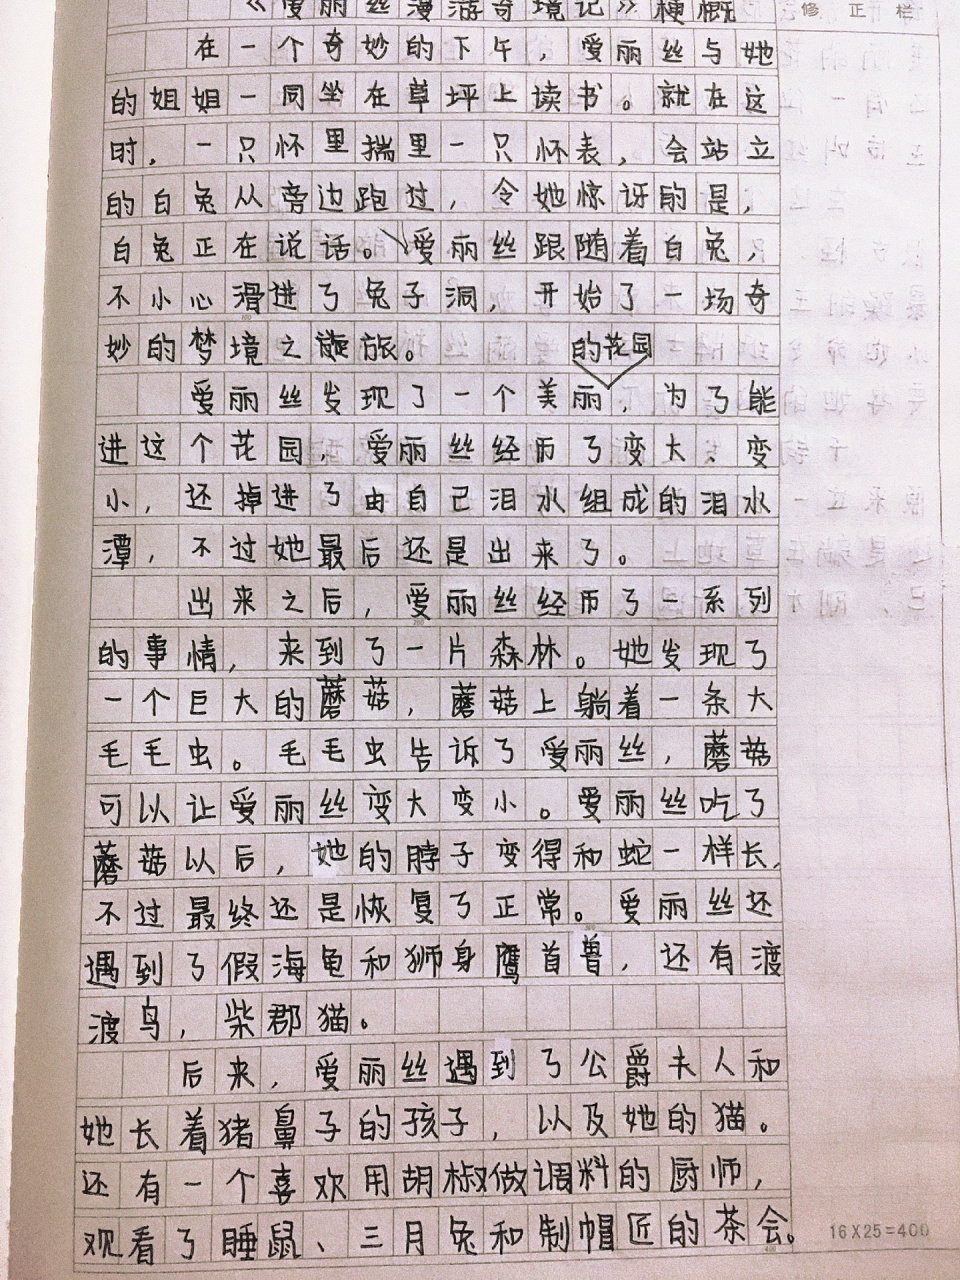 《爱丽丝漫游奇境记》梗概
修正栏
在一个奇妙的下午，爱丽丝与她
的姐姐一同坐在草坪上读书。就在这
时，一只怀里揣里一只怀表，会站立
的白兔从旁边跑过，令她惊讶的是，
白兔正在说话。爱丽丝跟随着白兔，
不小心滑进了兔子洞，开始了一场奇
妙的梦境之旅。
的花园
爱丽丝发现了一个美丽，为了能
进这个花园，爱丽丝经历了变大、变
小，还掉进了由自己泪水组成的泪水
潭，不过她最后还是出来了。
出来之后，爱丽丝经历了一系列
的事情，来到了一片森林。她发现了
一个巨大的蘑菇，蘑菇上躺着一条大
毛毛虫。毛毛虫告诉了爱丽丝，蘑菇
可以让爱丽丝变大变小。爱丽丝吃了
蘑菇以后，她的脖子变得和蛇一样长，
不过最终还是恢复了正常。爱丽丝还
遇到了假海龟和狮身鹰首兽，还有渡
渡鸟，柴郡猫。
后来，爱丽丝遇到了公爵夫人和
她长着猪鼻子的孩子，以及她的猫。
还有一个喜欢用胡椒做调料的厨师，
观看了睡鼠、三月兔和制帽匠的茶会。
16X25=400